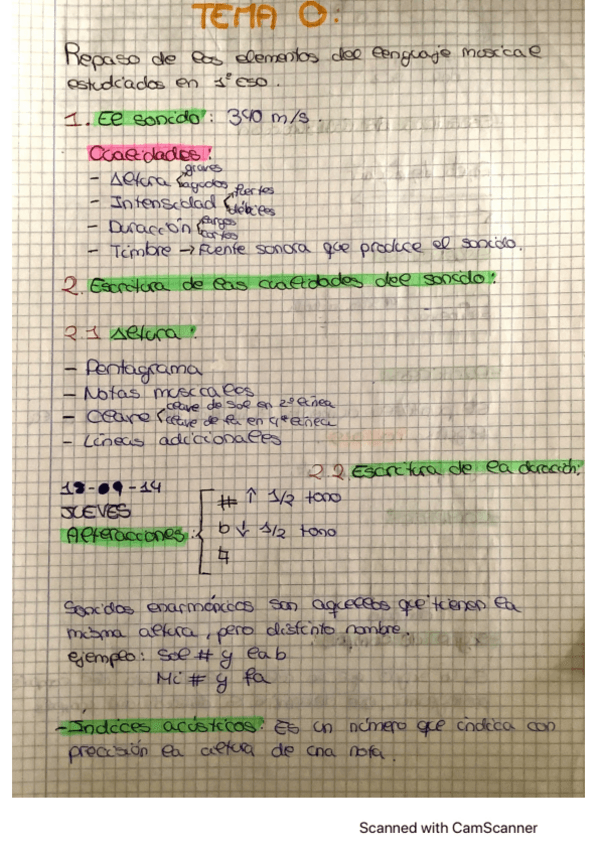 TEMA 0:
Repaso de los elementos del lenguaje musical
estudiados en 1º ESO.
1. El sonido: 340 m/s.
Cualidades:
- Altura graves
agudos
- Intensidad fuertes
débiles
- Duración largos
cortos
- Timbre → Fuente sonora que produce el sonido.
2. Escritura de las cualidades del sonido:
2.1 Altura:
- Pentagrama
- Notas musicales
- Clave clave de sol en 2ª línea
clave de fa en 4ª línea
- Líneas adicionales
2.2 Escritura de la duración:
18-09-14
JUEVES
Alteraciones:
# ↑ 1/2 tono
b ↓ 1/2 tono
♮
Sonidos enarmónicos son aquellos que tienen la
misma altura, pero distinto nombre.
ejemplo: Sol # y la b
Mi # y fa
- Índices acústicos: Es un número que indica con
precisión la altura de una nota.
Scanned with CamScanner